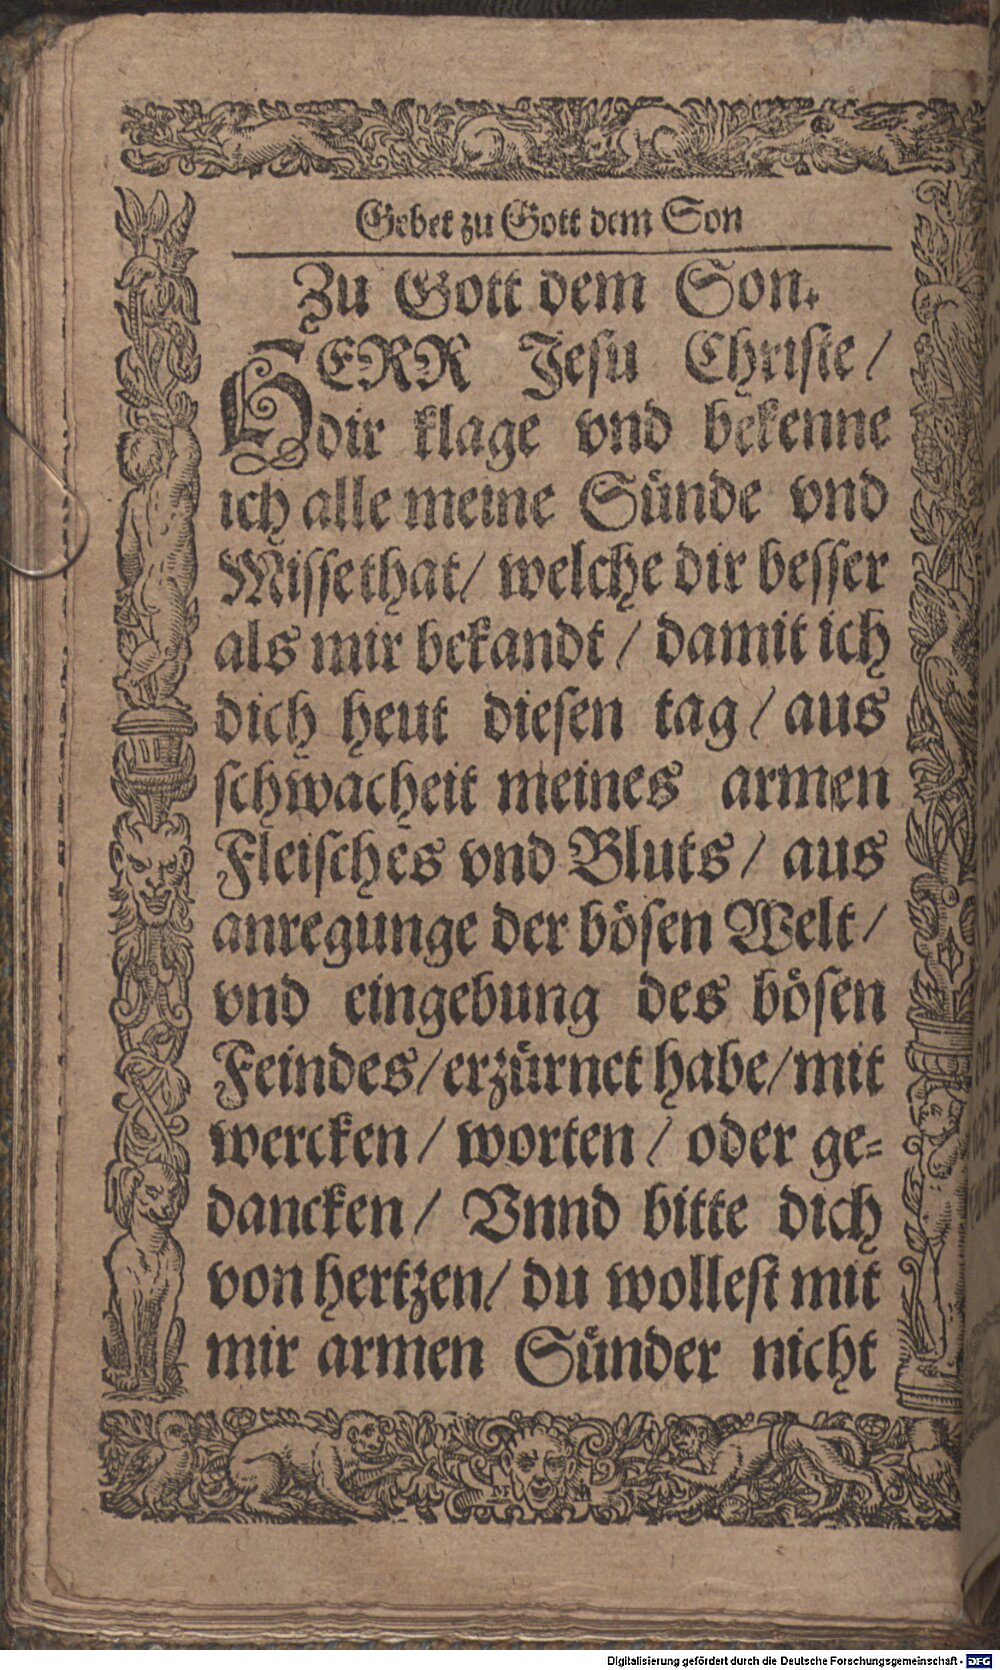 Gebet zu Gott dem Son
Zu Gott dem Son.
HERR Jesu Christe/
dir klage vnd bekenne
ich alle meine Sünde vnd
Missethat/ welche dir besser
als mir bekandt/ damit ich
dich heut diesen tag/ aus
schwacheit meines armen
Fleisches vnd Bluts/ aus
anregunge der bösen Welt/
vnd eingebung des bösen
Feindes/ erzürnet habe/ mit
wercken/ worten/ oder ge-
dancken/ Vnnd bitte dich
von hertzen/ du wollest mit
mir armen Sünder nicht
M M
Digitalisierung gefördert durch die Deutsche Forschungsgemeinschaft - DFG